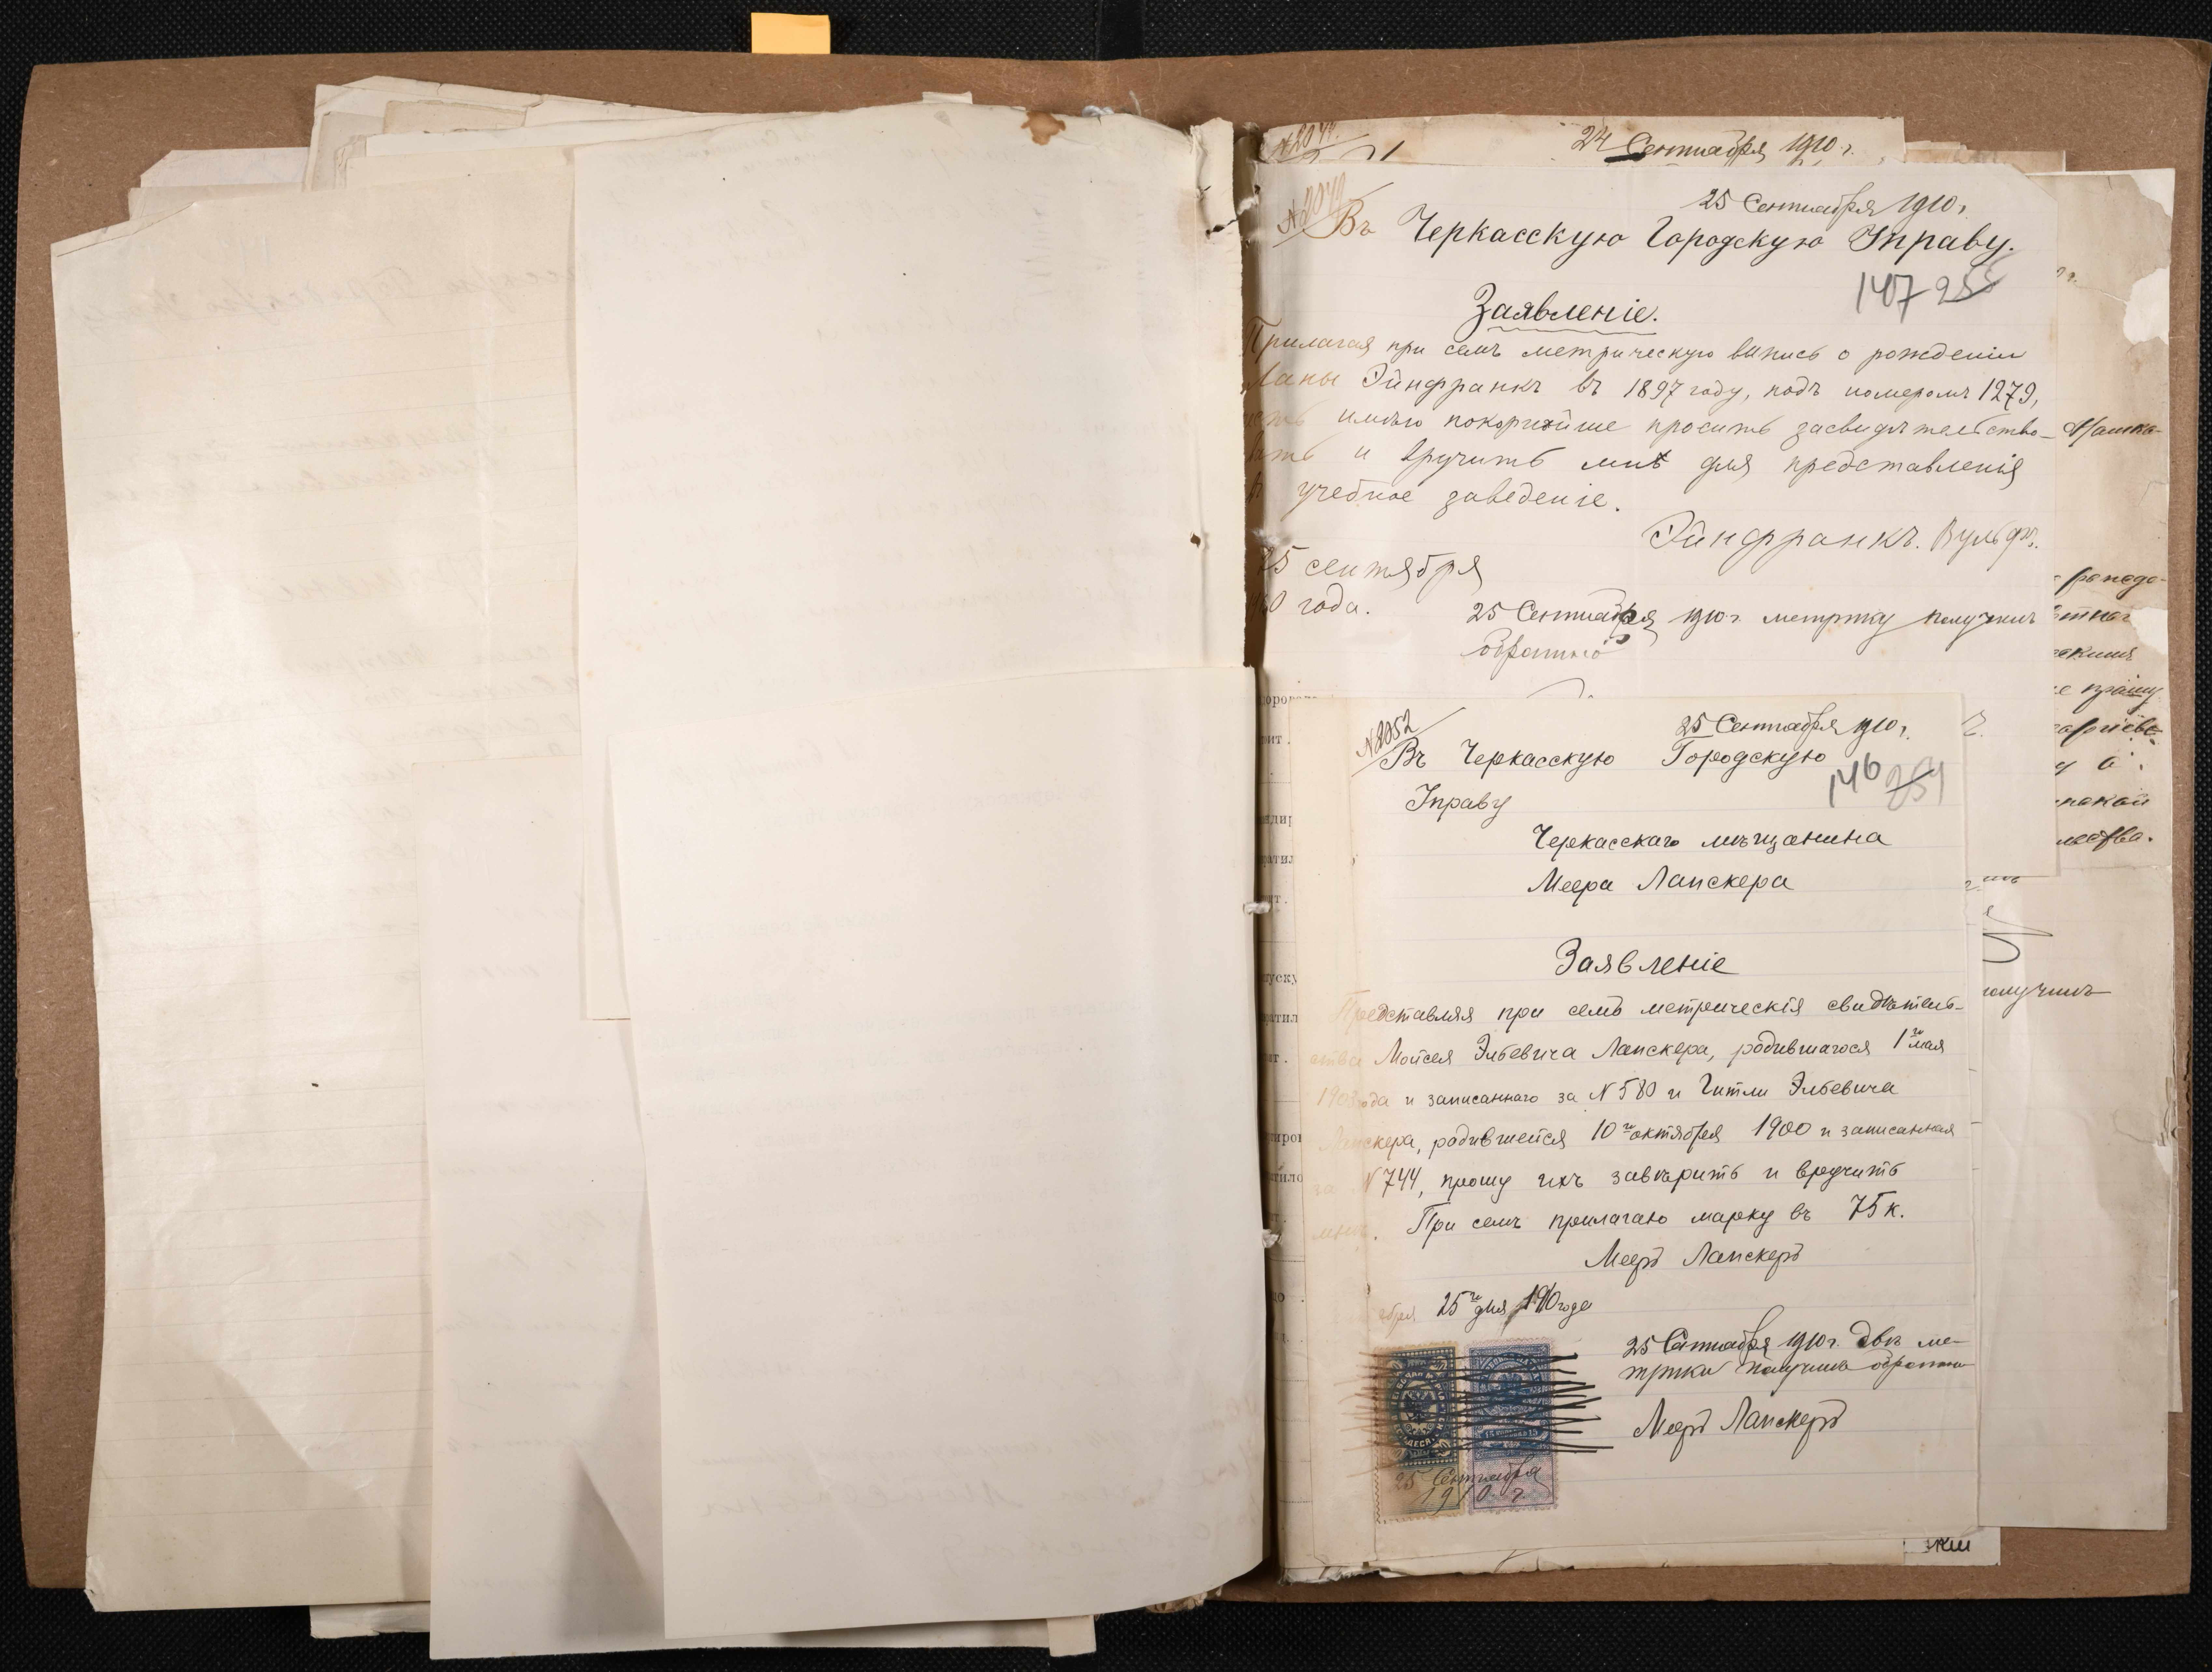 24 Сентября 1910 г.
25 Сентября 1910 г.
Въ Черкасскую Городскую Управу.
147 255
Заявленіе.
Прилагая при семъ метрическую выпись о рожденіи
Эйнфранкъ въ 1897 году, подъ номеромъ 1279,
честь имѣю покорнѣйше просить засвидѣтельство-
вать и вручить мнѣ для представленія
въ учебное заведеніе.
Эйнфранкъ. Вульфъ.
25 сентября
1910 года.
25 Сентября 1910 г. метрику получилъ
обратно
№2052
25 Сентября 1910 г.
Въ Черкасскую Городскую
146 254
Управу
Черкасскаго мѣщанина
Меера Лапскера
Заявленіе
Представляя при семъ метрическія свидѣтель-
ства Мойсея Эльевича Лапскера, родившагося 1го мая
года и записаннаго за №580 и Гитли Эльевича
Лапскера, родившейся 10го октября 1900 и записанная
за №744, прошу ихъ завѣрить и вручить
мнѣ. При семъ прилагаю марку въ 75 к.
Мееръ Лапскеръ
25го дня 1910 года
25 Сентября 1910 г. двѣ ме-
трики получилъ обратно
Мееръ Лапскеръ
25 Сентября
1910 г.
получилъ